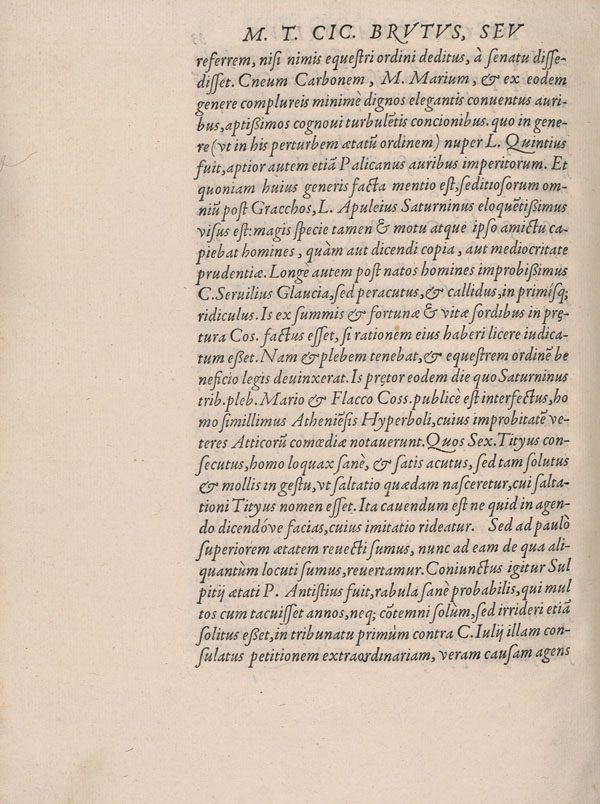 M. T. CIC. BRVTVS, SEV
referrem, nisi nimis equeſtri ordini deditus, à ſenatu diſſe-
diſſet. Cneum Carbonem, M. Marium, & ex eodem
genere complureis minimè dignos elegantis conuentus auri-
bus, aptiſſimos cognoui turbulẽtis concionibus. quo in gene-
re (vt in his perturbem ætatũ ordinem) nuper L. Quintius
fuit, aptior autem etiã Palicanus auribus imperitorum. Et
quoniam huius generis facta mentio eſt, ſeditioſorum om-
niũ poſt Gracchos, L. Apuleius Saturninus eloquẽtiſſimus
viſus eſt: magis ſpecie tamen & motu atque ipſo amictu ca-
piebat homines, quàm aut dicendi copia, aut mediocritate
prudentiæ. Longè autem poſt natos homines improbiſſimus
C. Seruilius Glaucia, ſed peracutus, & callidus, in primiſq;
ridiculus. Is ex ſummis & fortunæ & vitæ ſordibus in prę-
tura Cos. factus eſſet, ſi rationem eius haberi licere iudica-
tum eßet. Nam & plebem tenebat, & equeſtrem ordinẽ be
neficio legis deuinxerat. Is prętor eodem die quo Saturninus
trib. pleb. Mario & Flacco Coss. publicè eſt interfectus, ho
mo ſimillimus Atheniẽſis Hyperboli, cuius improbitatẽ ve-
teres Atticorũ comœdiæ notauerunt. Quos Sex. Tityus con-
ſecutus, homo loquax ſanè, & ſatis acutus, ſed tam ſolutus
& mollis in geſtu, vt ſaltatio quædam naſceretur, cui ſalta-
tioni Tityus nomen eſſet. Ita cauendum eſt ne quid in agen-
do dicendóve facias, cuius imitatio rideatur. Sed ad paulò
ſuperiorem ætatem reuecti ſumus, nunc ad eam de qua ali-
quantùm locuti ſumus, reuertamur. Coniunctus igitur Sul
pitij ætati P. Antiſtius fuit, rabula ſanè probabilis, qui mul
tos cum tacuiſſet annos, neq; cõtemni ſolùm, ſed irrideri etiã
ſolitus eßet, in tribunatu primùm contra C. Iulij illam con-
ſulatus petitionem extraordinariam, veram cauſam agens